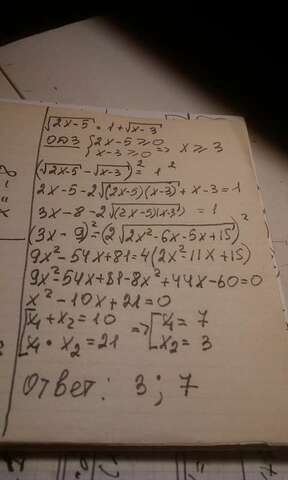 √2x-5 = 1+√x-3
ОДЗ {2x-5≥0 x-3≥0 => x≥3
(√2x-5 - √x-3)² = 1²
2x-5-2√(2x-5)(x-3) + x-3=1
3x-8-2√(2x-5)(x-3) = 1
(3x-9)²=(2√2x²-6x-5x+15)²
9x²-54x+81=4(2x²-11x+15)
9x²-54x+81-8x²+44x-60=0
x²-10x+21=0
[x₁+x₂=10 => [x₁=7
x₁·x₂=21 x₂=3
Ответ: 3; 7